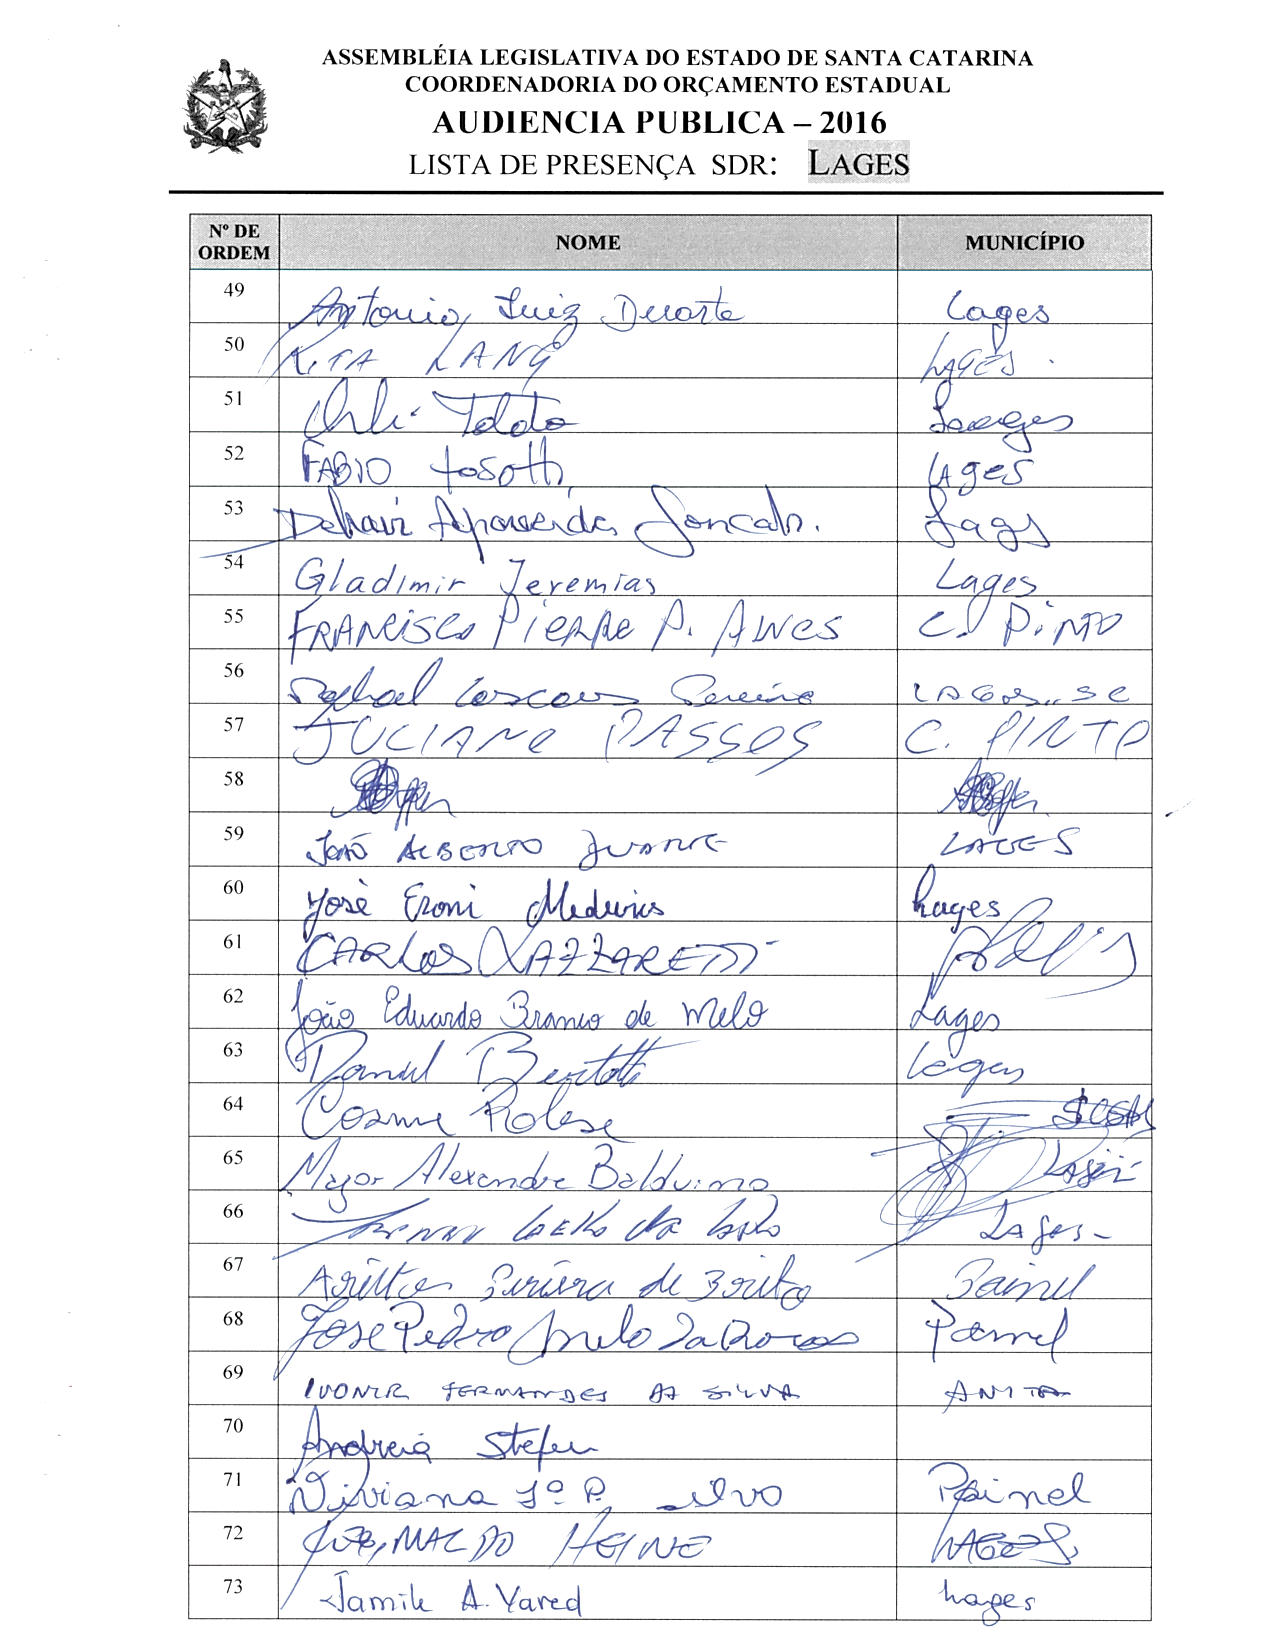 ASSEMBLÉIA LEGISLATIVA DO ESTADO DE SANTA CATARINA
COORDENADORIA DO ORÇAMENTO ESTADUAL
AUDIENCIA PUBLICA – 2016
LISTA DE PRESENÇA SDR: LAGES
Nº DE ORDEM NOME MUNICÍPIO
49 Antonio Luiz Duarte Lages
50 RITA LANG LAGES.
51 Lages
52 FABIO Lages
53 Aparecida Lages
54 Gladimir Jeremias Lages
55 FRANCISCO PIERRE P. ALVES C. PINTO
56 Raphael Pereira
57 JULIANO PASSOS C. PINTO
58
59 JOÃO ALBERTO DUARTE LAGES
60 José Eroni Medeiros Lages
61 CARLOS
62 João Eduardo Branco de Melo Lages
63 Daniel Bertotti Lages
64 Cosme Polese
65 Major Alexandre Balduino Lages
66 Lages-
67 Pereira de Brito Painel
68 José Pedro Melo Painel
69 IVONIR FERNANDES DA SILVA ANITA
70 Andreia
71 Viviana Painel
72 HEINE LAGES
73 Jamile A. Yared Lages